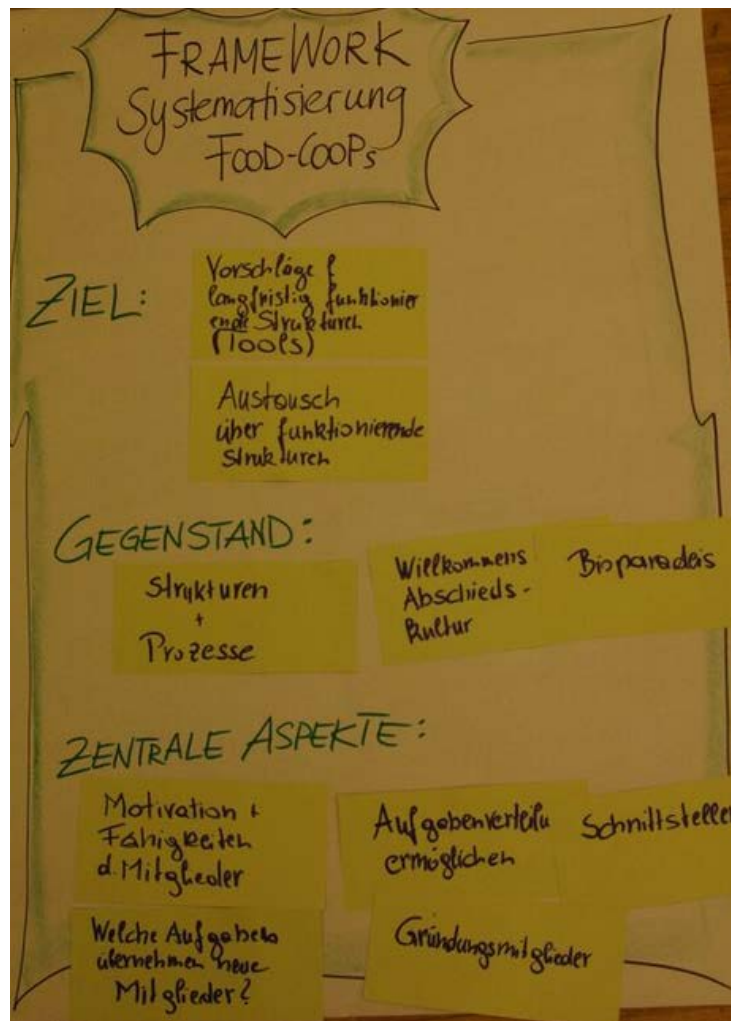 FRAMEWORK
Systematisierung
FOOD-COOPs
ZIEL:
Vorschläge f
langfristig funktionier
ende Strukturen
(Tools)
Austausch
über funktionierende
Strukturen
GEGENSTAND:
Strukturen
+
Prozesse
Willkommens
Abschieds-
kultur
Bioparadeis
ZENTRALE ASPEKTE:
Motivation +
Fähigkeiten
d. Mitglieder
Aufgabenverteilu
ermöglichen
Schnittstellen
Welche Aufgaben
übernehmen neue
Mitglieder?
Gründungsmitglieder